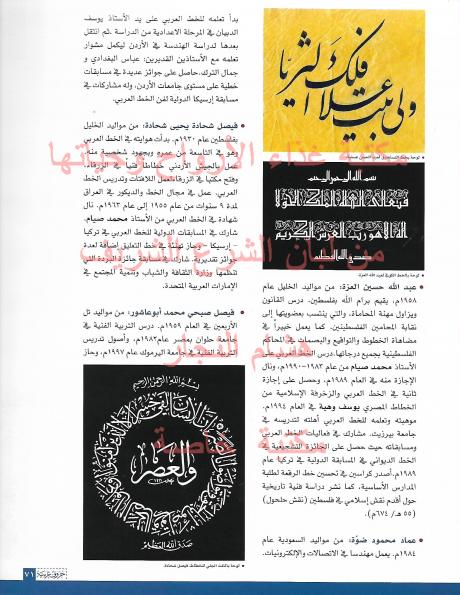 بدأ تعلمه للخط العربي على يد الأستاذ يوسف
الدبيان في المرحلة الاعدادية من الدراسة. ثم انتقل
بعدها لدراسة الهندسة في الأردن ليكمل مشوار
تعلمه مع الأستاذين القديرين: عباس البغدادي و
جمال الترك. حاصل على جوائز عديدة في مسابقات
خطية على مستوى جامعات الأردن، وله مشاركات في
مسابقة إرسيكا الدولية لفن الخط العربي.
• فيصل شحادة يحيى شحادة: من مواليد الخليل
بفلسطين عام ١٩٣٠م. بدأت هوايته في الخط العربي
وهو في التاسعة من عمره وبجهود شخصية منه.
عمل بالجيش الأردني خطاطاً فنياً في الزرقاء،
وفتح مكتباً في الزرقاء لعمل اللافتات وتدريس الخط
العربي. عمل في مجال الخط والديكور في العراق
لمدة ٩ سنوات من عام ١٩٥٥ إلى عام ١٩٦٣م. نال
شهادة في الخط العربي من الأستاذ محمد صيام.
شارك في المسابقات الدولية للخط العربي في تركيا
- إرسيكا - وحاز تهنئة في خط التعليق إضافة لعدة
جوائز تقديرية. شارك في مسابقة جائزة البردة التي
تنظمها وزارة الثقافة والشباب وتنمية المجتمع في
الإمارات العربية المتحدة.
• فيصل صبحي محمد أبوعاشور: من مواليد تل
الأربعين في العام ١٩٥٩م. درس التربية الفنية في
جامعة حلوان بمصر عام ١٩٨٢م، وأصول تدريس
التربية الفنية في جامعة اليرموك عام ١٩٩٧م، وحاز
بسم الله الرحمن الرحيم
والعصر
صدق الله العظيم
• لوحة بالثلث الجلي للخطاط فيصل شحادة.
ولن يبلغ علاك الثريا
بسم الله الرحمن الرحيم
فتعالى الله الملك الحق لا إله إلا هو رب العرش الكريم
صدق الله العظيم
• لوحة بالخط الكوفي لعبد الله العزة.
• عبد الله حسين العزة: من مواليد الخليل عام
١٩٥٨م. يقيم برام الله بفلسطين. درس القانون
ويزاول مهنة المحاماة، والتي ينتسب بعضويتها إلى
نقابة المحامين الفلسطينيين. كما يعمل خبيراً في
مضاهاة الخطوط والتواقيع والبصمات في المحاكم
الفلسطينية بجميع درجاتها. درس الخط العربي على
الأستاذ محمد صيام من عام ١٩٨٢-١٩٩٠م، ونال
الإجازة منه في العام ١٩٨٩م، وحصل على إجازة
ثانية في الخط العربي والزخرفة الإسلامية من
الخطاط المصري يوسف وهبة في العام ١٩٩٤م.
موهبته وتعلمه للخط العربي أهلته لتدريسه في
جامعة بيرزيت. شارك في فعاليات الخط العربي
ومسابقاته حيث حصل على الجائزة التشجيعية في
الخط الديواني في المسابقة الدولية في تركيا عام
١٩٨٩م. أصدر كراسين في تحسين خط الرقعة لطلبة
المدارس الأساسية، كما نشر دراسة فنية تاريخية
حول أقدم نقش إسلامي في فلسطين (نقش حلحول)
(٥٥ هـ/ ٦٧٤م).
• عماد محمود ضوّة: من مواليد السعودية عام
١٩٨٤م. يعمل مهندسا في الاتصالات والإلكترونيات.
من لبان الشرع الشريف
هشام النجار
مكتبة خاصة
حروف عربية
٧١